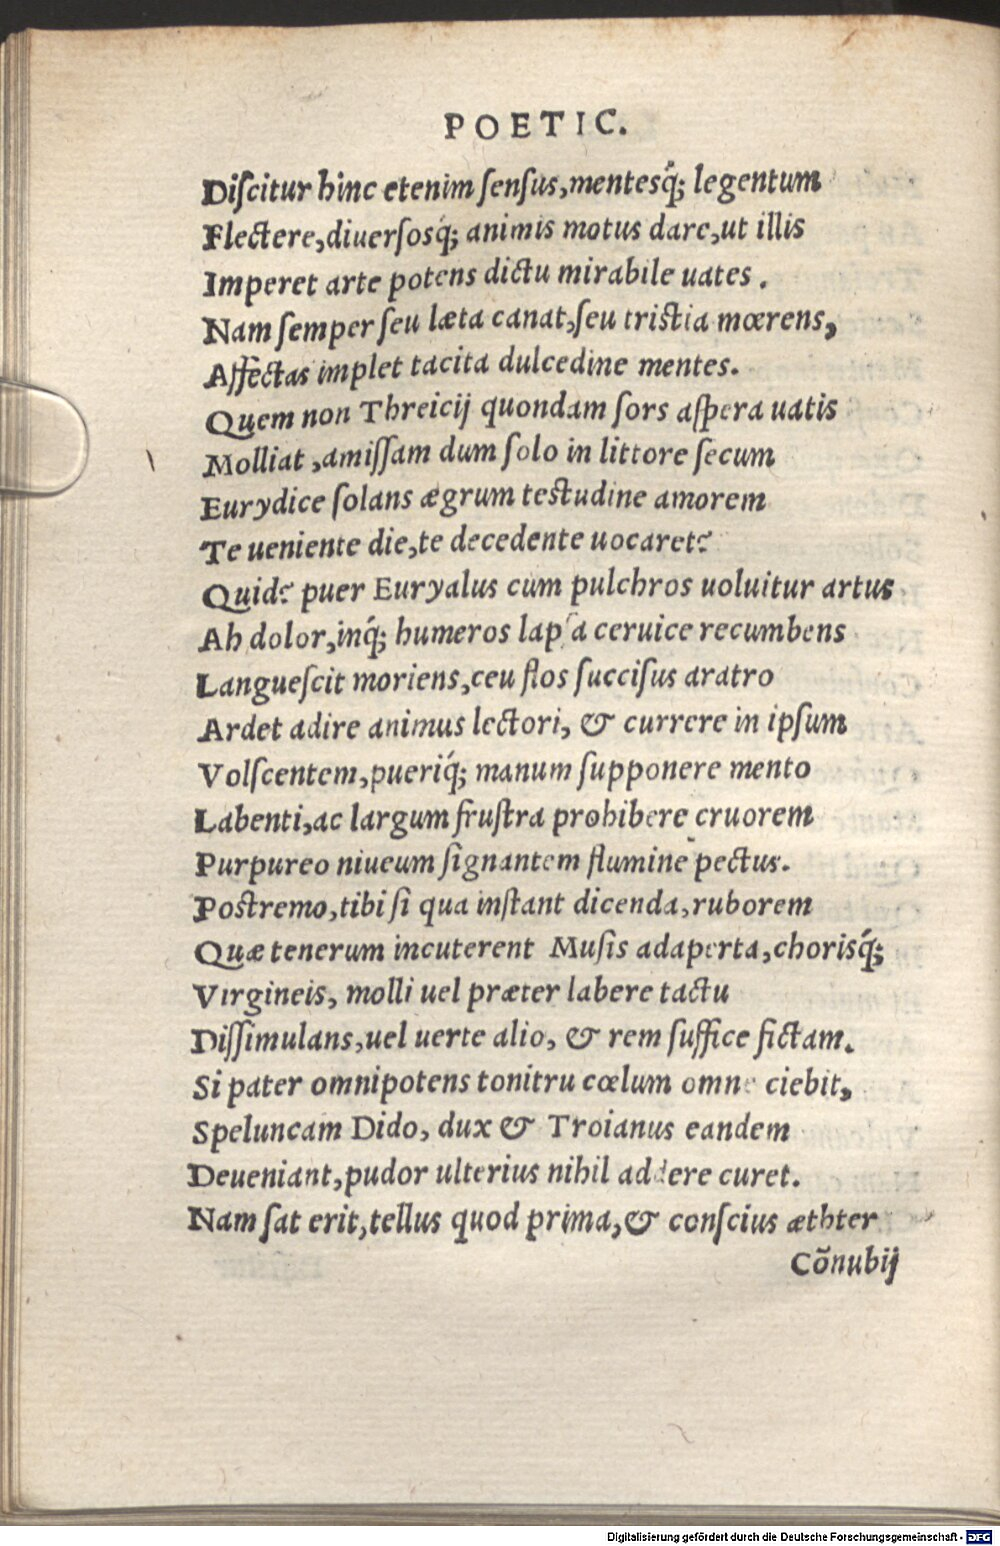 POETIC.
Diſcitur hinc etenim ſenſus,mentesq́; legentum
Flectere,diuerſosq́; animis motus dare,ut illis
Imperet arte potens dictu mirabile uates.
Nam ſemper ſeu læta canat,ſeu triſtia mœrens,
Affectas implet tacita dulcedine mentes.
Quem non Threicij quondam ſors aſpera uatis
Molliat,amiſſam dum ſolo in littore ſecum
Eurydice ſolans ægrum teſtudine amorem
Te ueniente die,te decedente uocaret?
Quid? puer Euryalus cum pulchros uoluitur artus
Ah dolor,inq́; humeros lapſa ceruice recumbens
Langueſcit moriens,ceu flos ſucciſus aratro
Ardet adire animus lectori, & currere in ipſum
Volſcentem,pueriq́; manum ſupponere mento
Labenti,ac largum fruſtra prohibere cruorem
Purpureo niueum ſignantem flumine pectus.
Poſtremo,tibi ſi qua inſtant dicenda,ruborem
Quæ tenerum incuterent Muſis adaperta,chorisq́;
Virgineis, molli uel præter labere tactu
Diſſimulans,uel uerte alio, & rem ſuffice fictam.
Si pater omnipotens tonitru cœlum omne ciebit,
Speluncam Dido, dux & Troianus eandem
Deueniant,pudor ulterius nihil addere curet.
Nam ſat erit,tellus quod prima,& conſcius æthter
Cõnubij
Digitalisierung gefördert durch die Deutsche Forschungsgemeinschaft - DFG